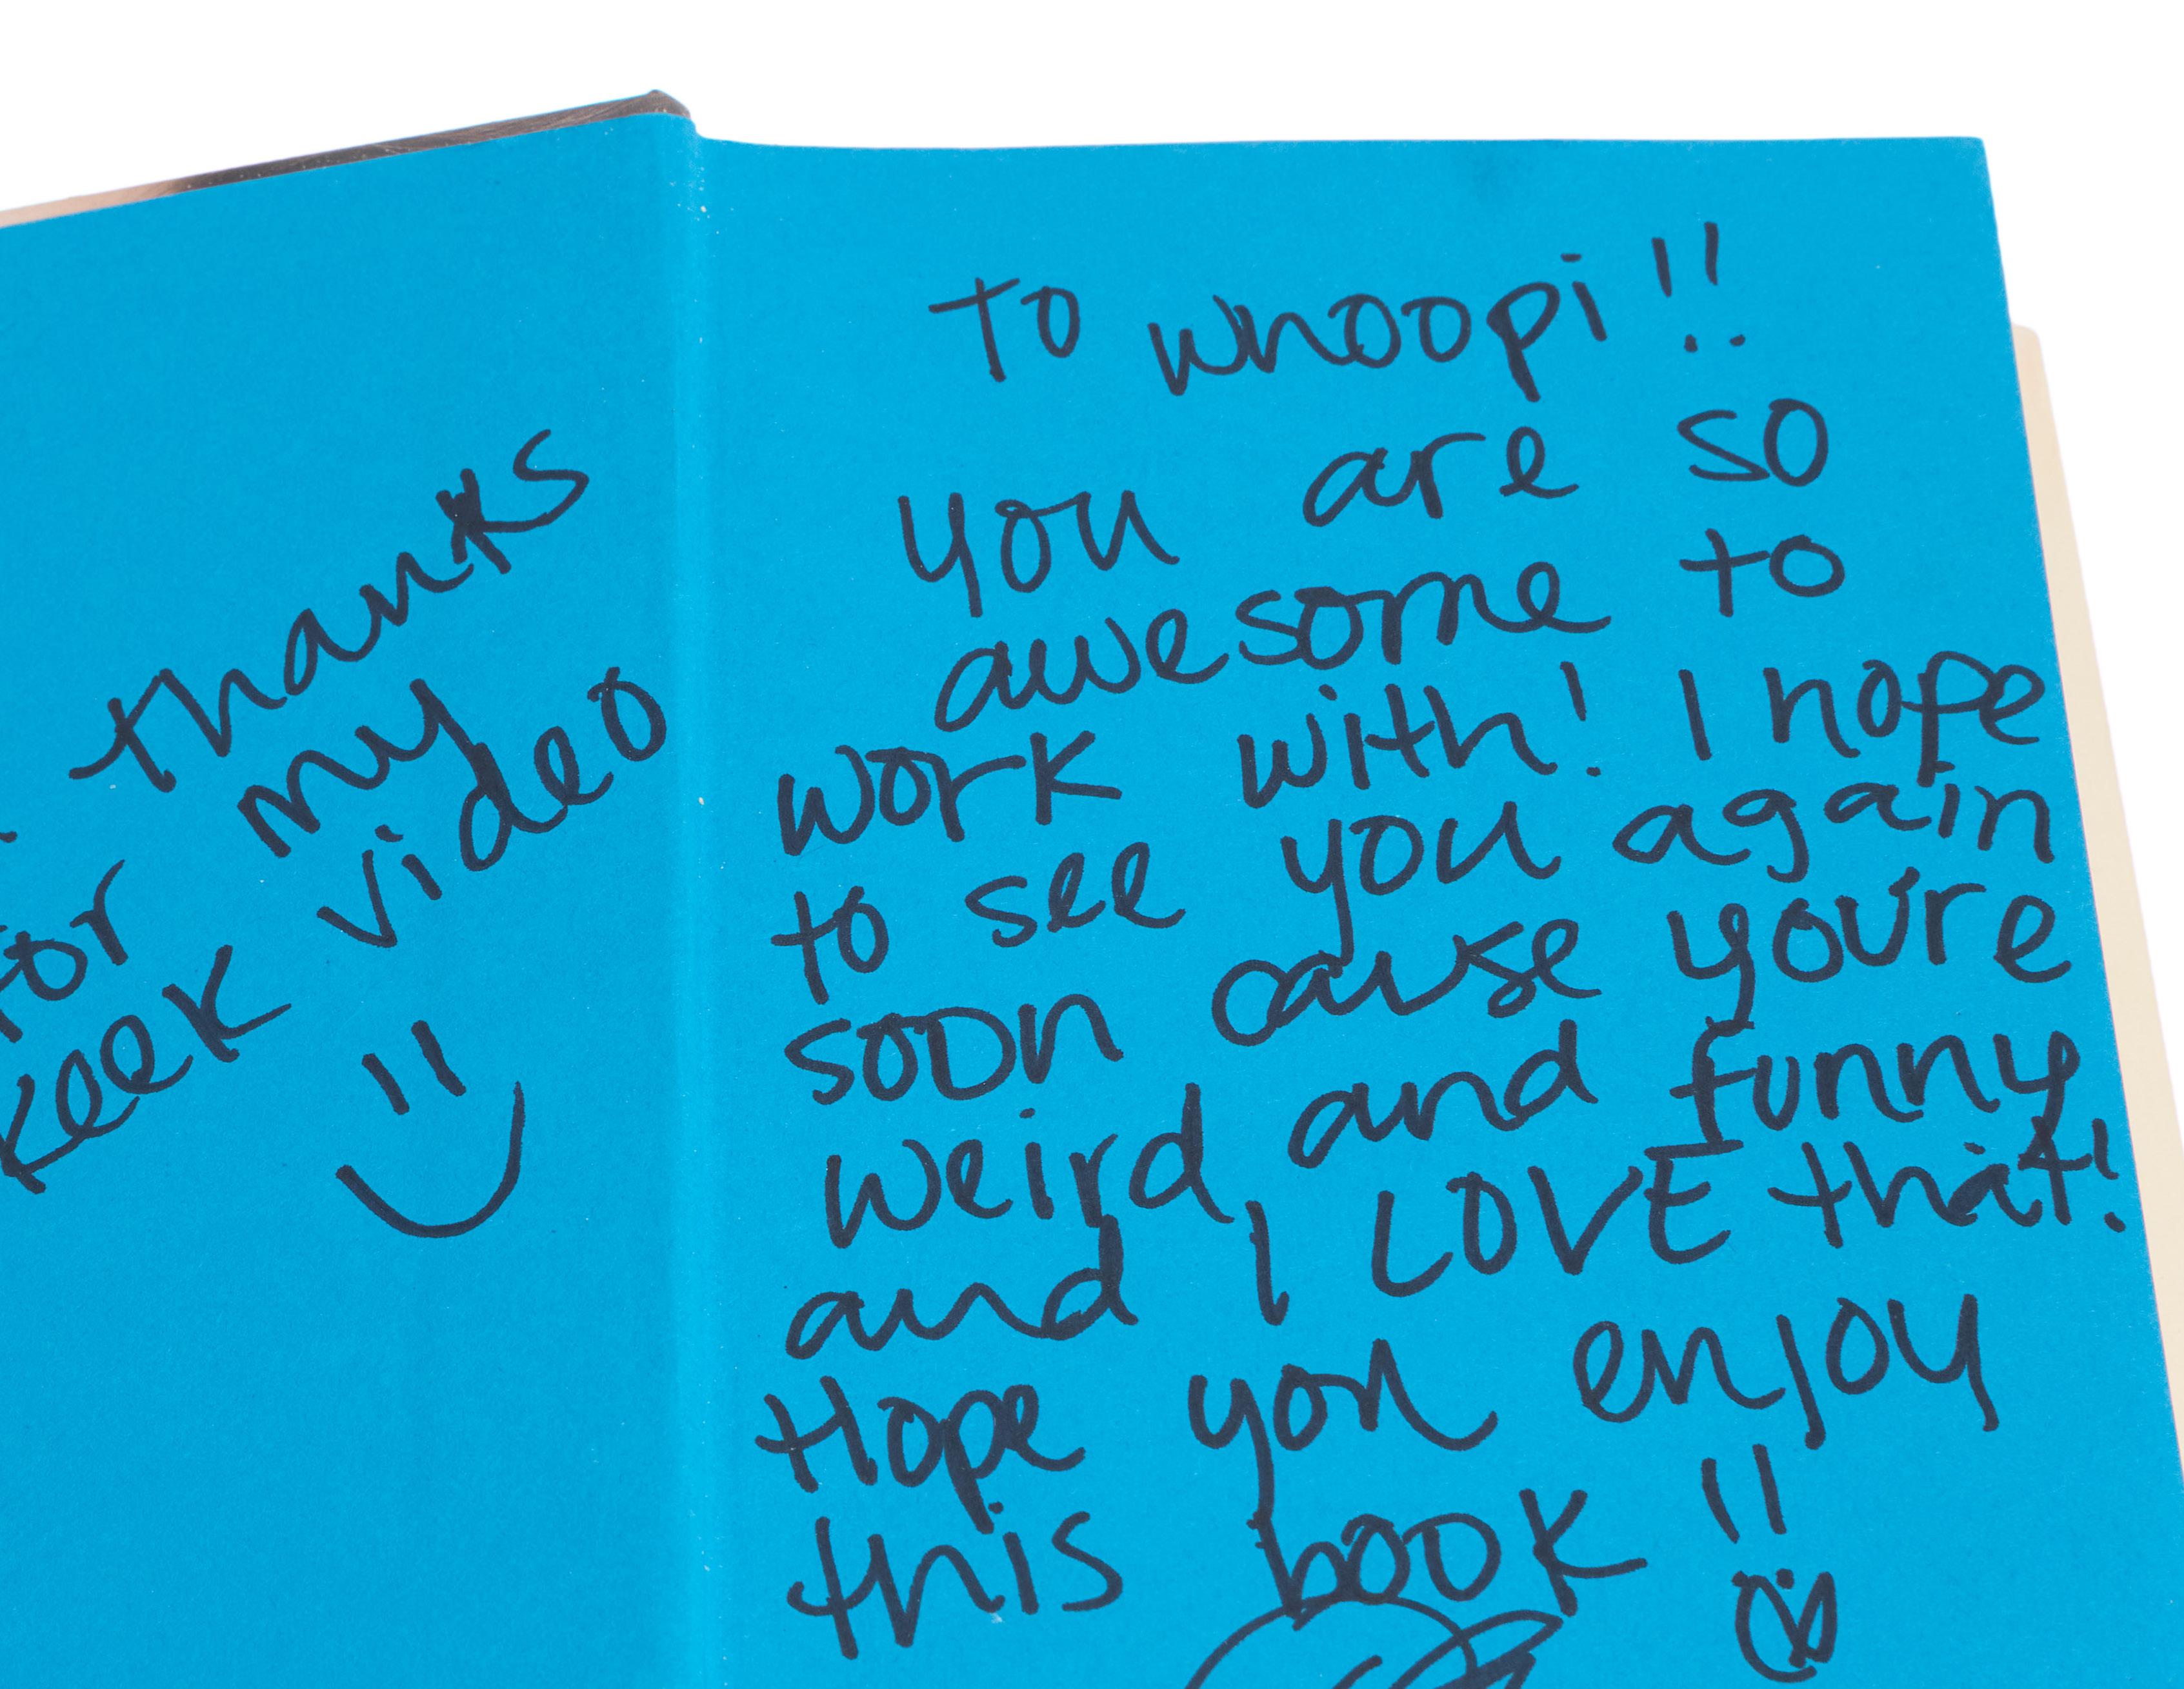 thanks
for my
keek video
To whoopi!!
you are so
awesome to
work with! I hope
to see you again
soon cause you're
weird and funny
and I LOVE that!
Hope you enjoy
this book!!